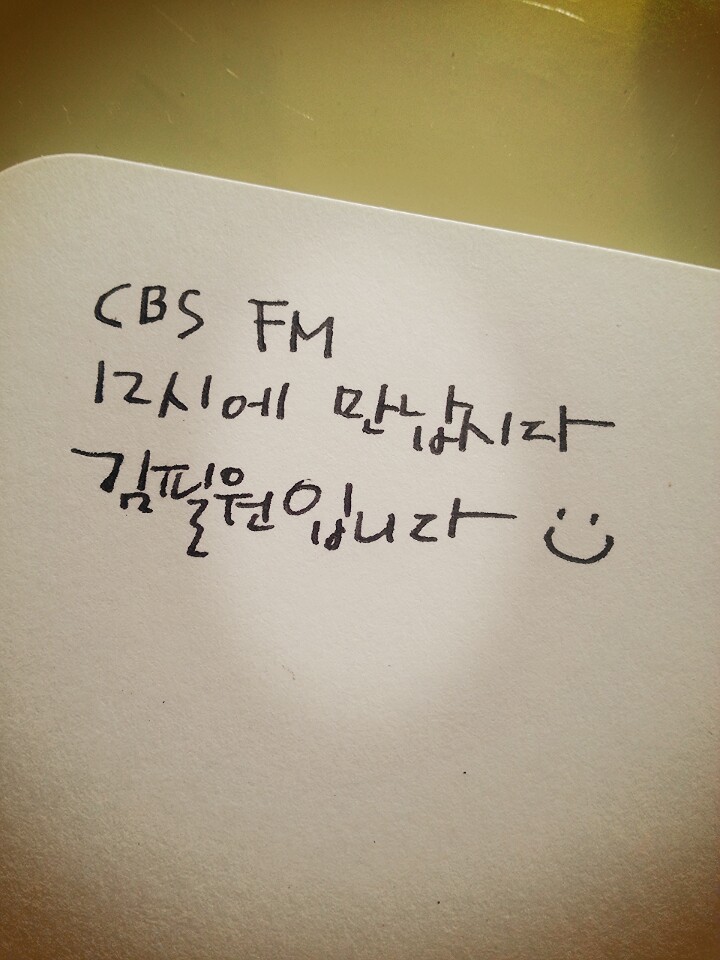 CBS FM
12시에 만납시다
김필원입니다 :)